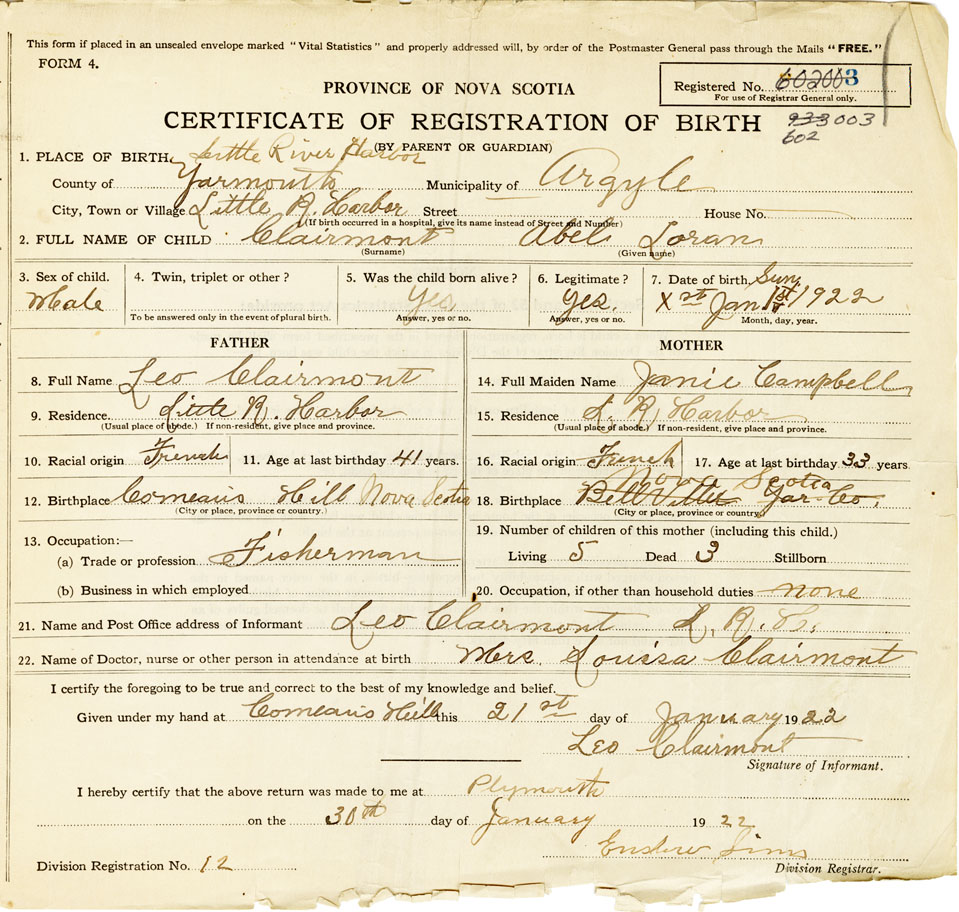 This form if placed in an unsealed envelope marked "Vital Statistics" and properly addressed will, by order of the Postmaster General pass through the Mails "FREE."
FORM 4.
PROVINCE OF NOVA SCOTIA
Registered No. 602003
For use of Registrar General only.
CERTIFICATE OF REGISTRATION OF BIRTH 933 003
(BY PARENT OR GUARDIAN) 602
1. PLACE OF BIRTH, Little River Harbor
County of Yarmouth Municipality of Argyle
City, Town or Village Little R. Harbor Street House No.
(If birth occurred in a hospital, give its name instead of Street and Number)
2. FULL NAME OF CHILD Clairmont Abel Loran
(Surname) (Given name)
3. Sex of child. 4. Twin, triplet or other? 5. Was the child born alive? 6. Legitimate? 7. Date of birth, Sun,
Male Yes Yes. Jan 1922
To be answered only in the event of plural birth. Answer, yes or no. Answer, yes or no. Month, day, year.
FATHER MOTHER
8. Full Name Leo Clairmont 14. Full Maiden Name Janie Campbell,
9. Residence. Little R. Harbor 15. Residence L. R. Harbor
(Usual place of abode.) If non-resident, give place and province. (Usual place of abode.) If non-resident, give place and province.
10. Racial origin French 11. Age at last birthday 41 years. 16. Racial origin French 17. Age at last birthday 33 years
Nova Scotia
12. Birthplace Comeau's Hill Nova Scotia 18. Birthplace Bell Ville Yar. Co.
(City or place, province or country.) (City or place, province or country.)
13. Occupation:— 19. Number of children of this mother (including this child.)
(a) Trade or profession Fisherman Living 5 Dead 3 Stillborn
(b) Business in which employed 20. Occupation, if other than household duties none
21. Name and Post Office address of Informant Leo Clairmont L. R.
22. Name of Doctor, nurse or other person in attendance at birth Mrs. Louisa Clairmont
I certify the foregoing to be true and correct to the best of my knowledge and belief.
Given under my hand at Comeau's Hill this 21st day of January 1922
Leo Clairmont
Signature of Informant.
I hereby certify that the above return was made to me at Plymouth
on the 30th day of January 1922
Sims
Division Registration No. 12 Division Registrar.